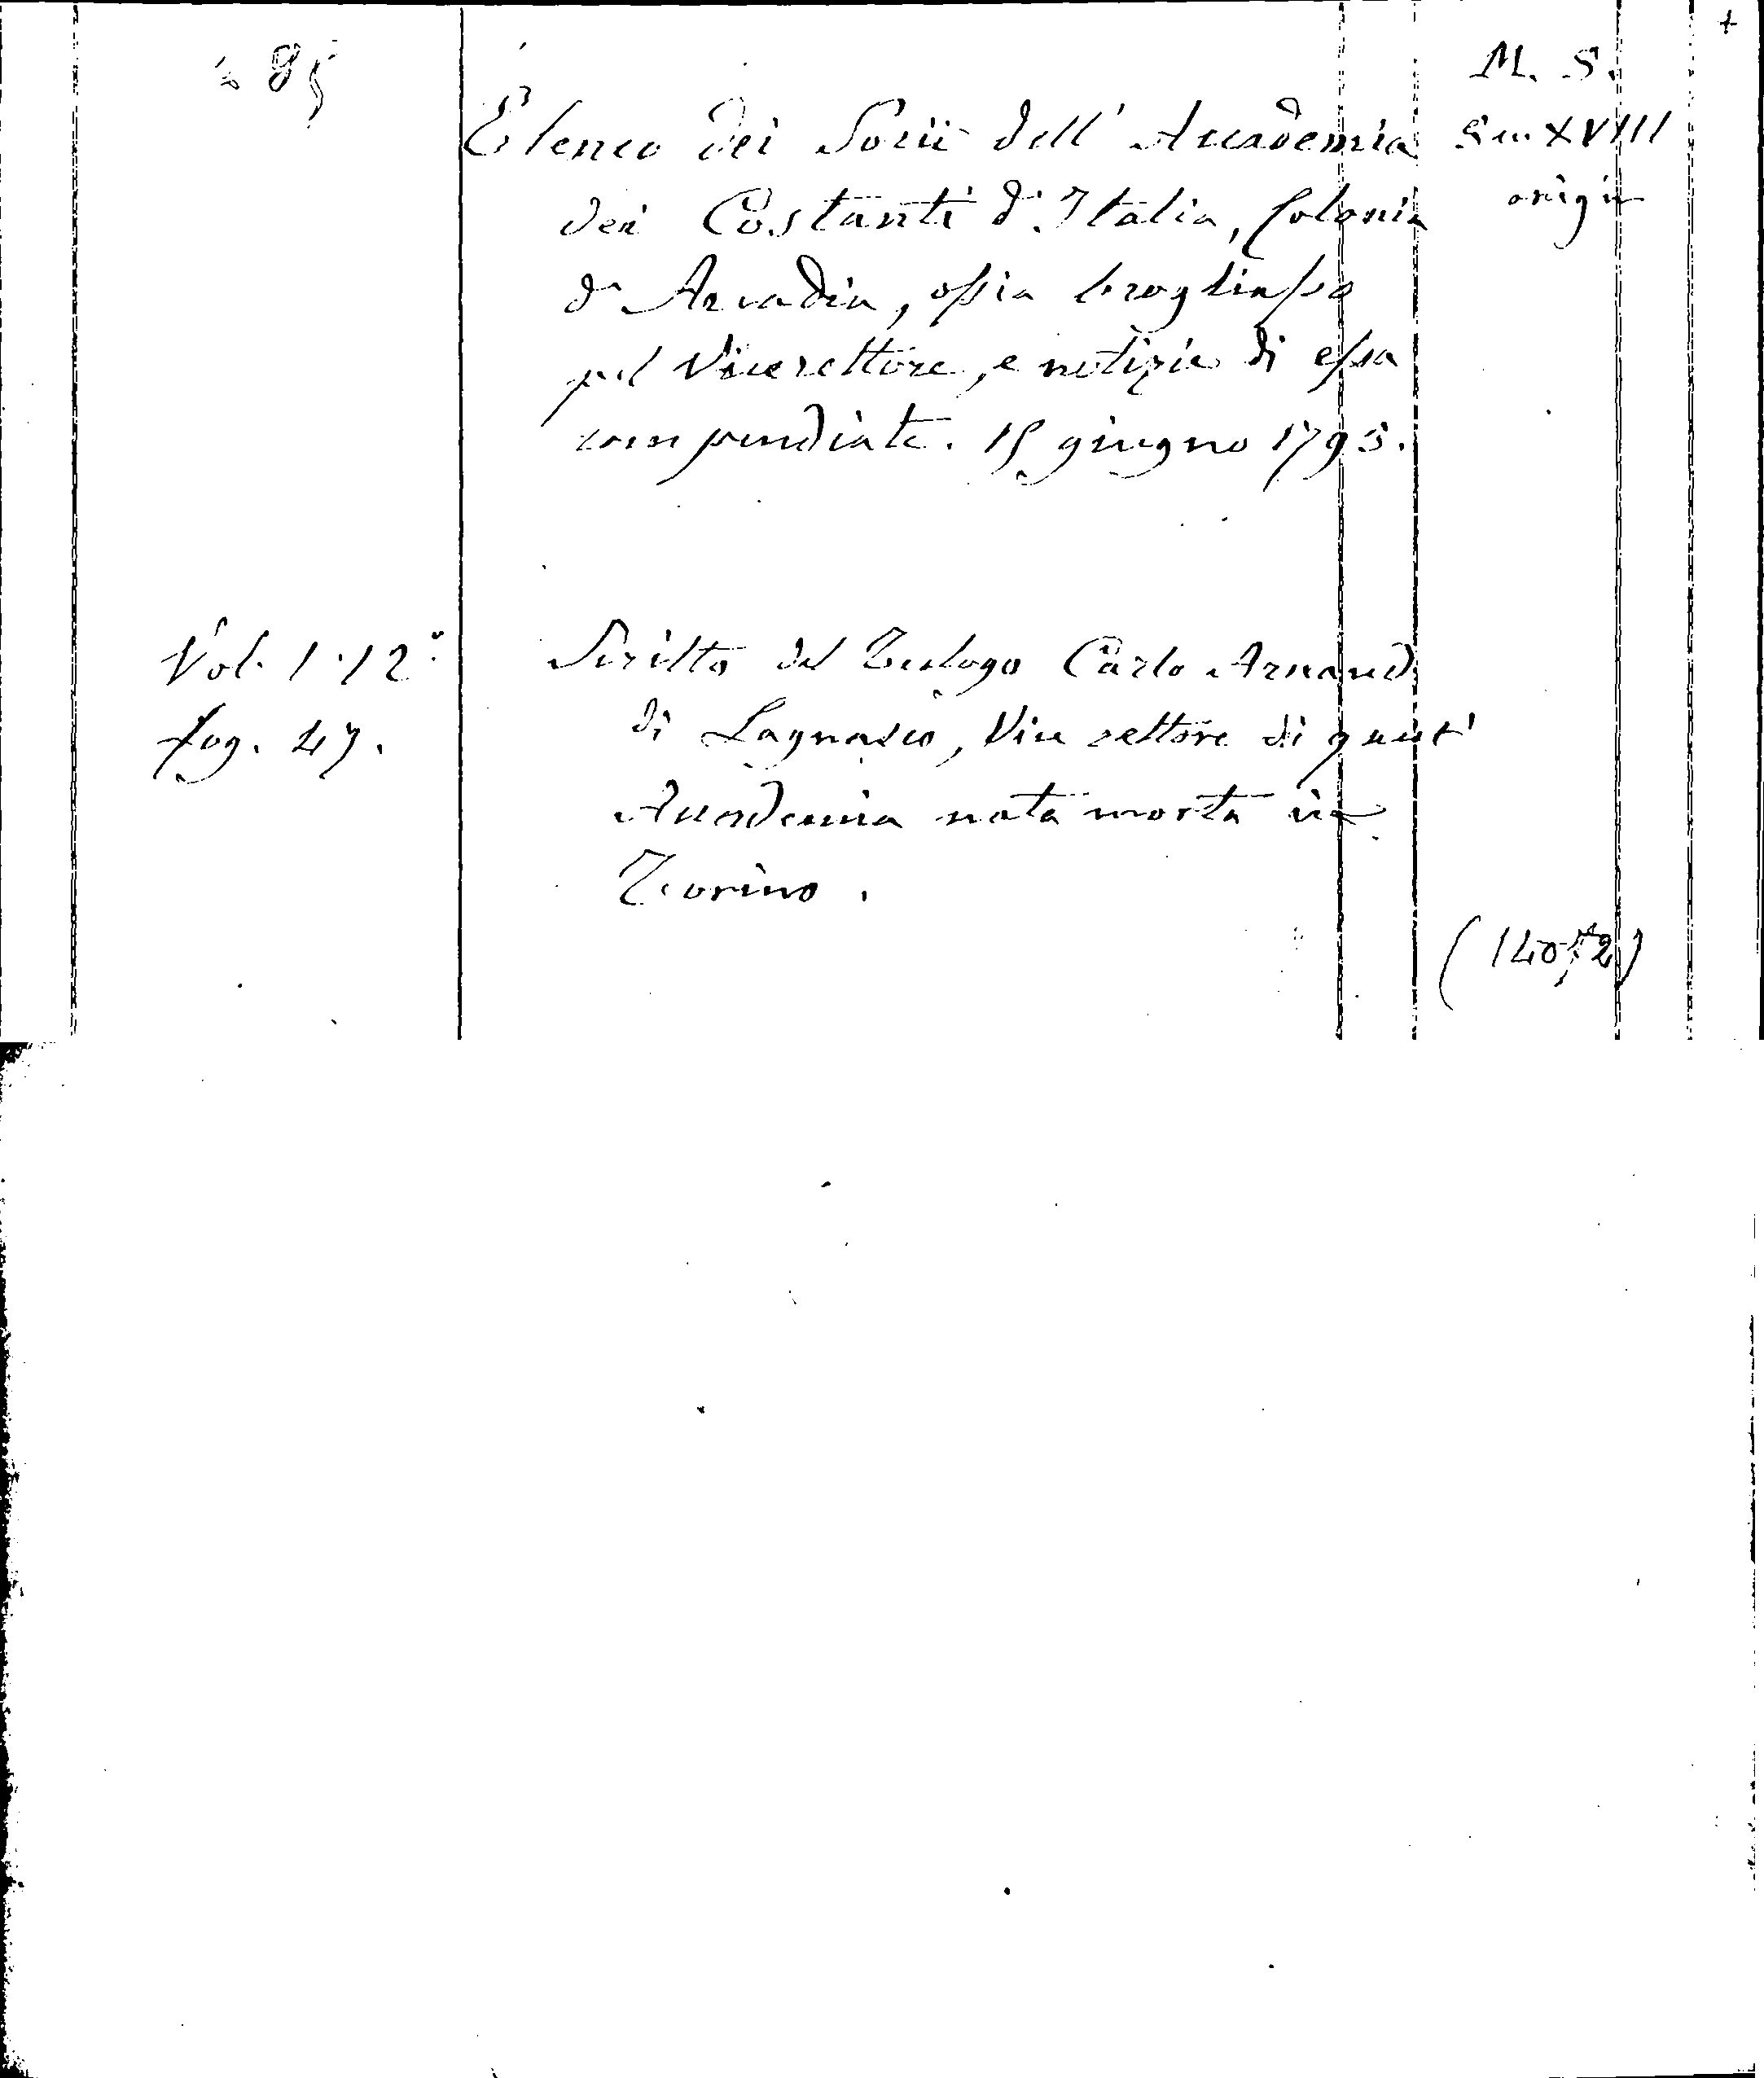 +
285
M. S.
Elenco dei Socii dell' Accademia
Sec XVIII
dei Costanti d'Italia, Colonia
origin
d'Arcadia, ossia brogliasso
pel Vicerettore, e notizie di essa
compendiate. 15 giugno 1795.
Vol. 1. 12°
Scritto dal Teologo Carlo Arnaud
fog. 47.
di Lagnasco, Vice rettore di quest'
Accademia nata morta in
Torino.
(14072)